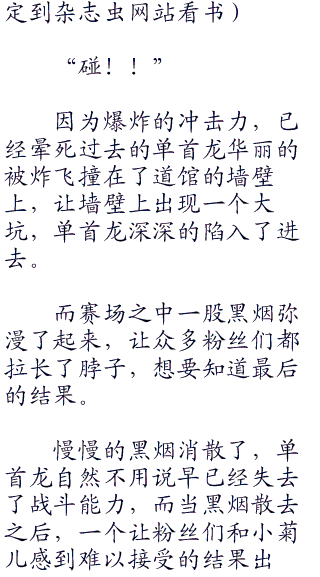 定到杂志虫网站看书）
“碰！！”
因为爆炸的冲击力，已
经晕死过去的单首龙华丽的
被炸飞撞在了道馆的墙壁
上，让墙壁上出现一个大
坑，单首龙深深的陷入了进
去。
而赛场之中一股黑烟弥
漫了起来，让众多粉丝们都
拉长了脖子，想要知道最后
的结果。
慢慢的黑烟消散了，单
首龙自然不用说早已经失去
了战斗能力，而当黑烟散去
之后，一个让粉丝们和小菊
儿感到难以接受的结果出